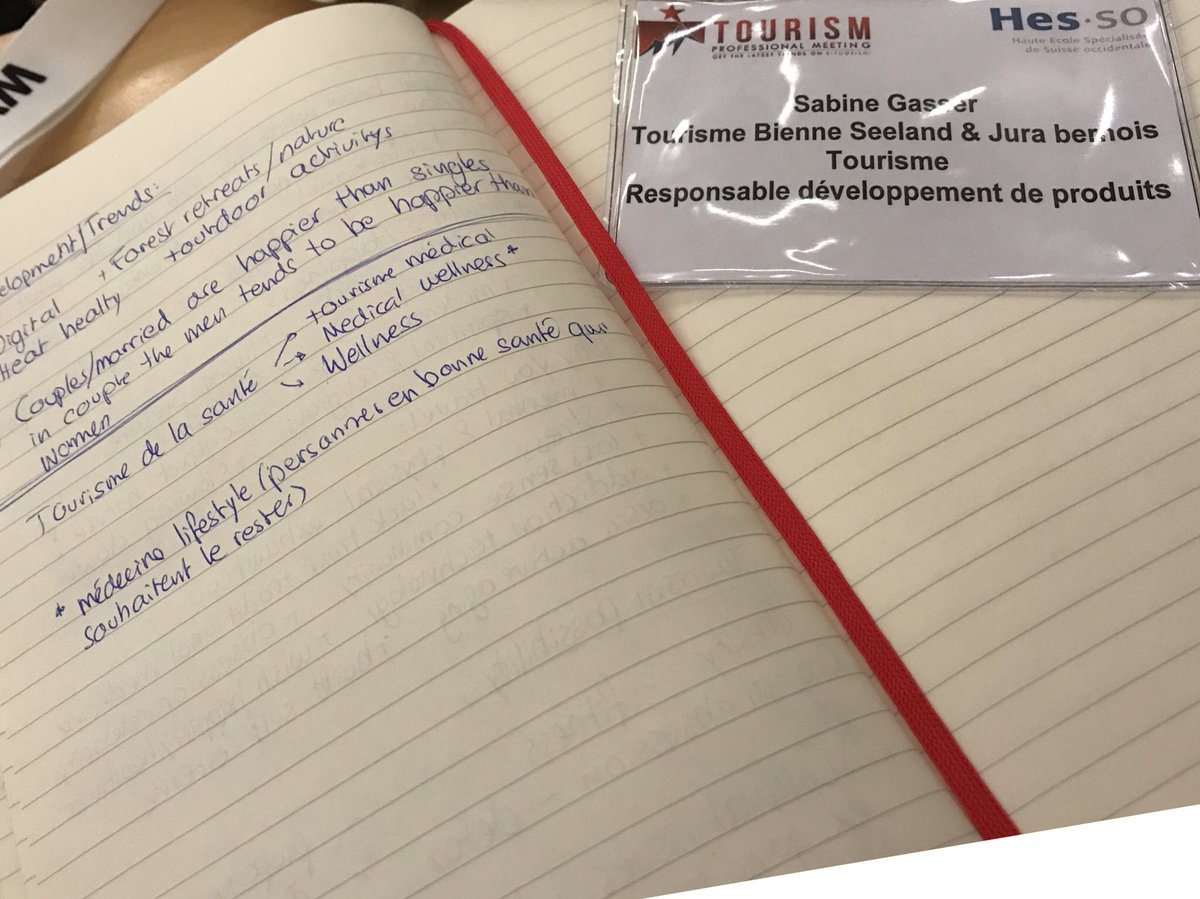 elopment/Trends:
Digital + Forest retreats/nature
Heat healty + outdoor activitys
Couples/married are happier than singles
in couple the men tends to be happier than
women
Tourisme de la santé
tourisme médical
Medical wellness*
Wellness
* médecine lifestyle (personnes en bonne santé qui
souhaitent le rester)
TOURISM
PROFESSIONAL MEETING
GET THE LATEST TRENDS ON E-TOURISM
Hes·so
Haute Ecole Spécialisée
de Suisse occidentale
Sabine Gasser
Tourisme Bienne Seeland & Jura bernois
Tourisme
Responsable développement de produits